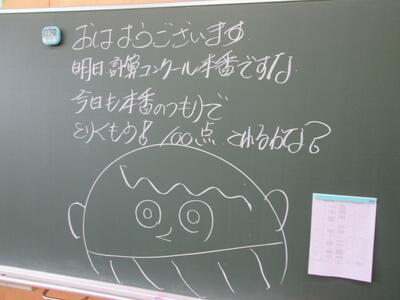 おはようございます
明日計算コンクール本番ですな
今日も本番のつもりで
とりくもう! 100点 とれるかな?